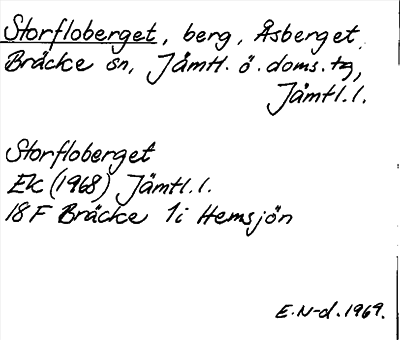 Storfloberget, berg, Åsberget,
Bräcke sn, Jämtl. ö. doms. tg,
Jämtl. l.
Storfloberget
Ek (1968) Jämtl. l.
18 F Bräcke 1i Hemsjön
E. N-d. 1969.